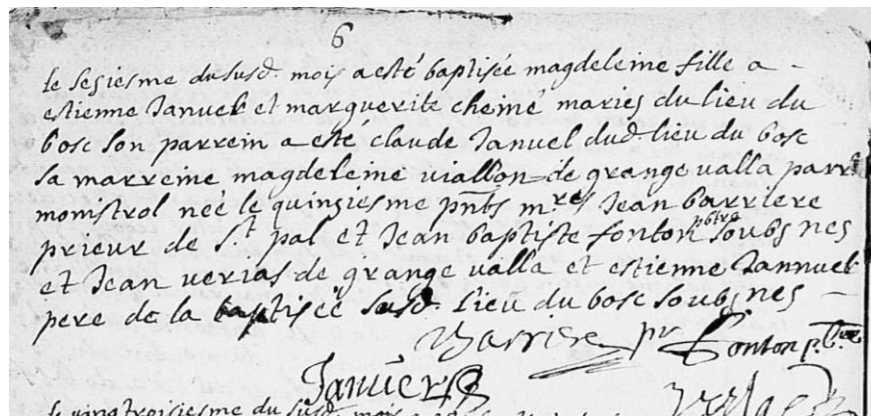 6
le sesiesme du susd. mois a esté baptisée magdeleine fille a
estienne Januel et marguerite chemé mariés du lieu du
bosc son parrein a esté claude Januel dud lieu du bosc
sa marreine magdeleine viallon de grange valla parr
monistrol née le quinziesme pnts m.res Jean barriere
prieur de S.t pal et Jean baptiste fonton pbtre soubsnes
et Jean verias de grange valla et estienne Jannuel
pere de la baptisée susd. lieu du bosc soubsnes
Barriere pr fonton p.bre
Januier
le vingtroisiesme du susd. mois